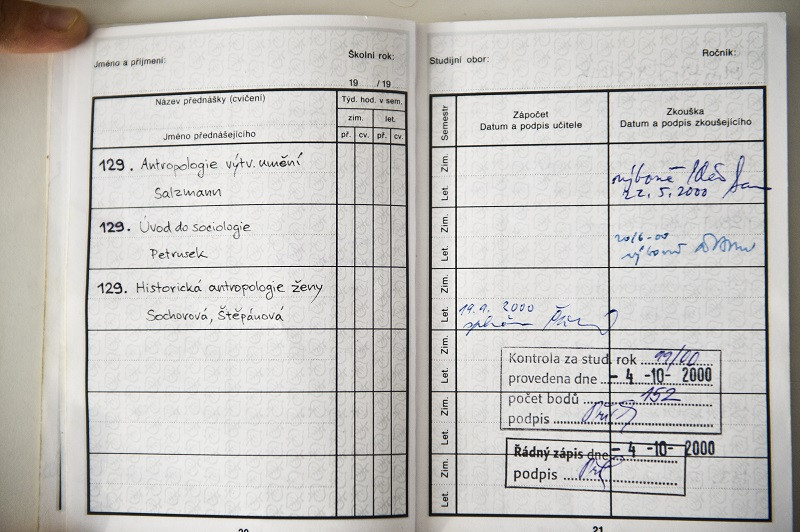 Jméno a příjmení:
Školní rok:
19 /19
Název přednášky (cvičení)
Jméno přednášejícího
Týd. hod. v sem.
zim. let.
př. cv. př. cv.
129. Antropologie výtv. umění
Salzmann
129. Úvod do sociologie
Petrusek
129. Historická antropologie ženy
Sochorová, Štěpánová
20
Studijní obor:
Ročník:
Semestr
Zápočet
Datum a podpis učitele
Zkouška
Datum a podpis zkoušejícího
Zim.
Let.
výborně
22. 5. 2000
Zim.
Let.
20/6-00
výborně
Zim.
Let.
19. 9. 2000
Zim.
Let.
Zim.
Let.
Zim.
Let.
Kontrola za stud. rok 99/00
provedena dne - 4 -10- 2000
počet bodů 152
podpis
Řádný zápis dne - 4 -10- 2000
podpis
21